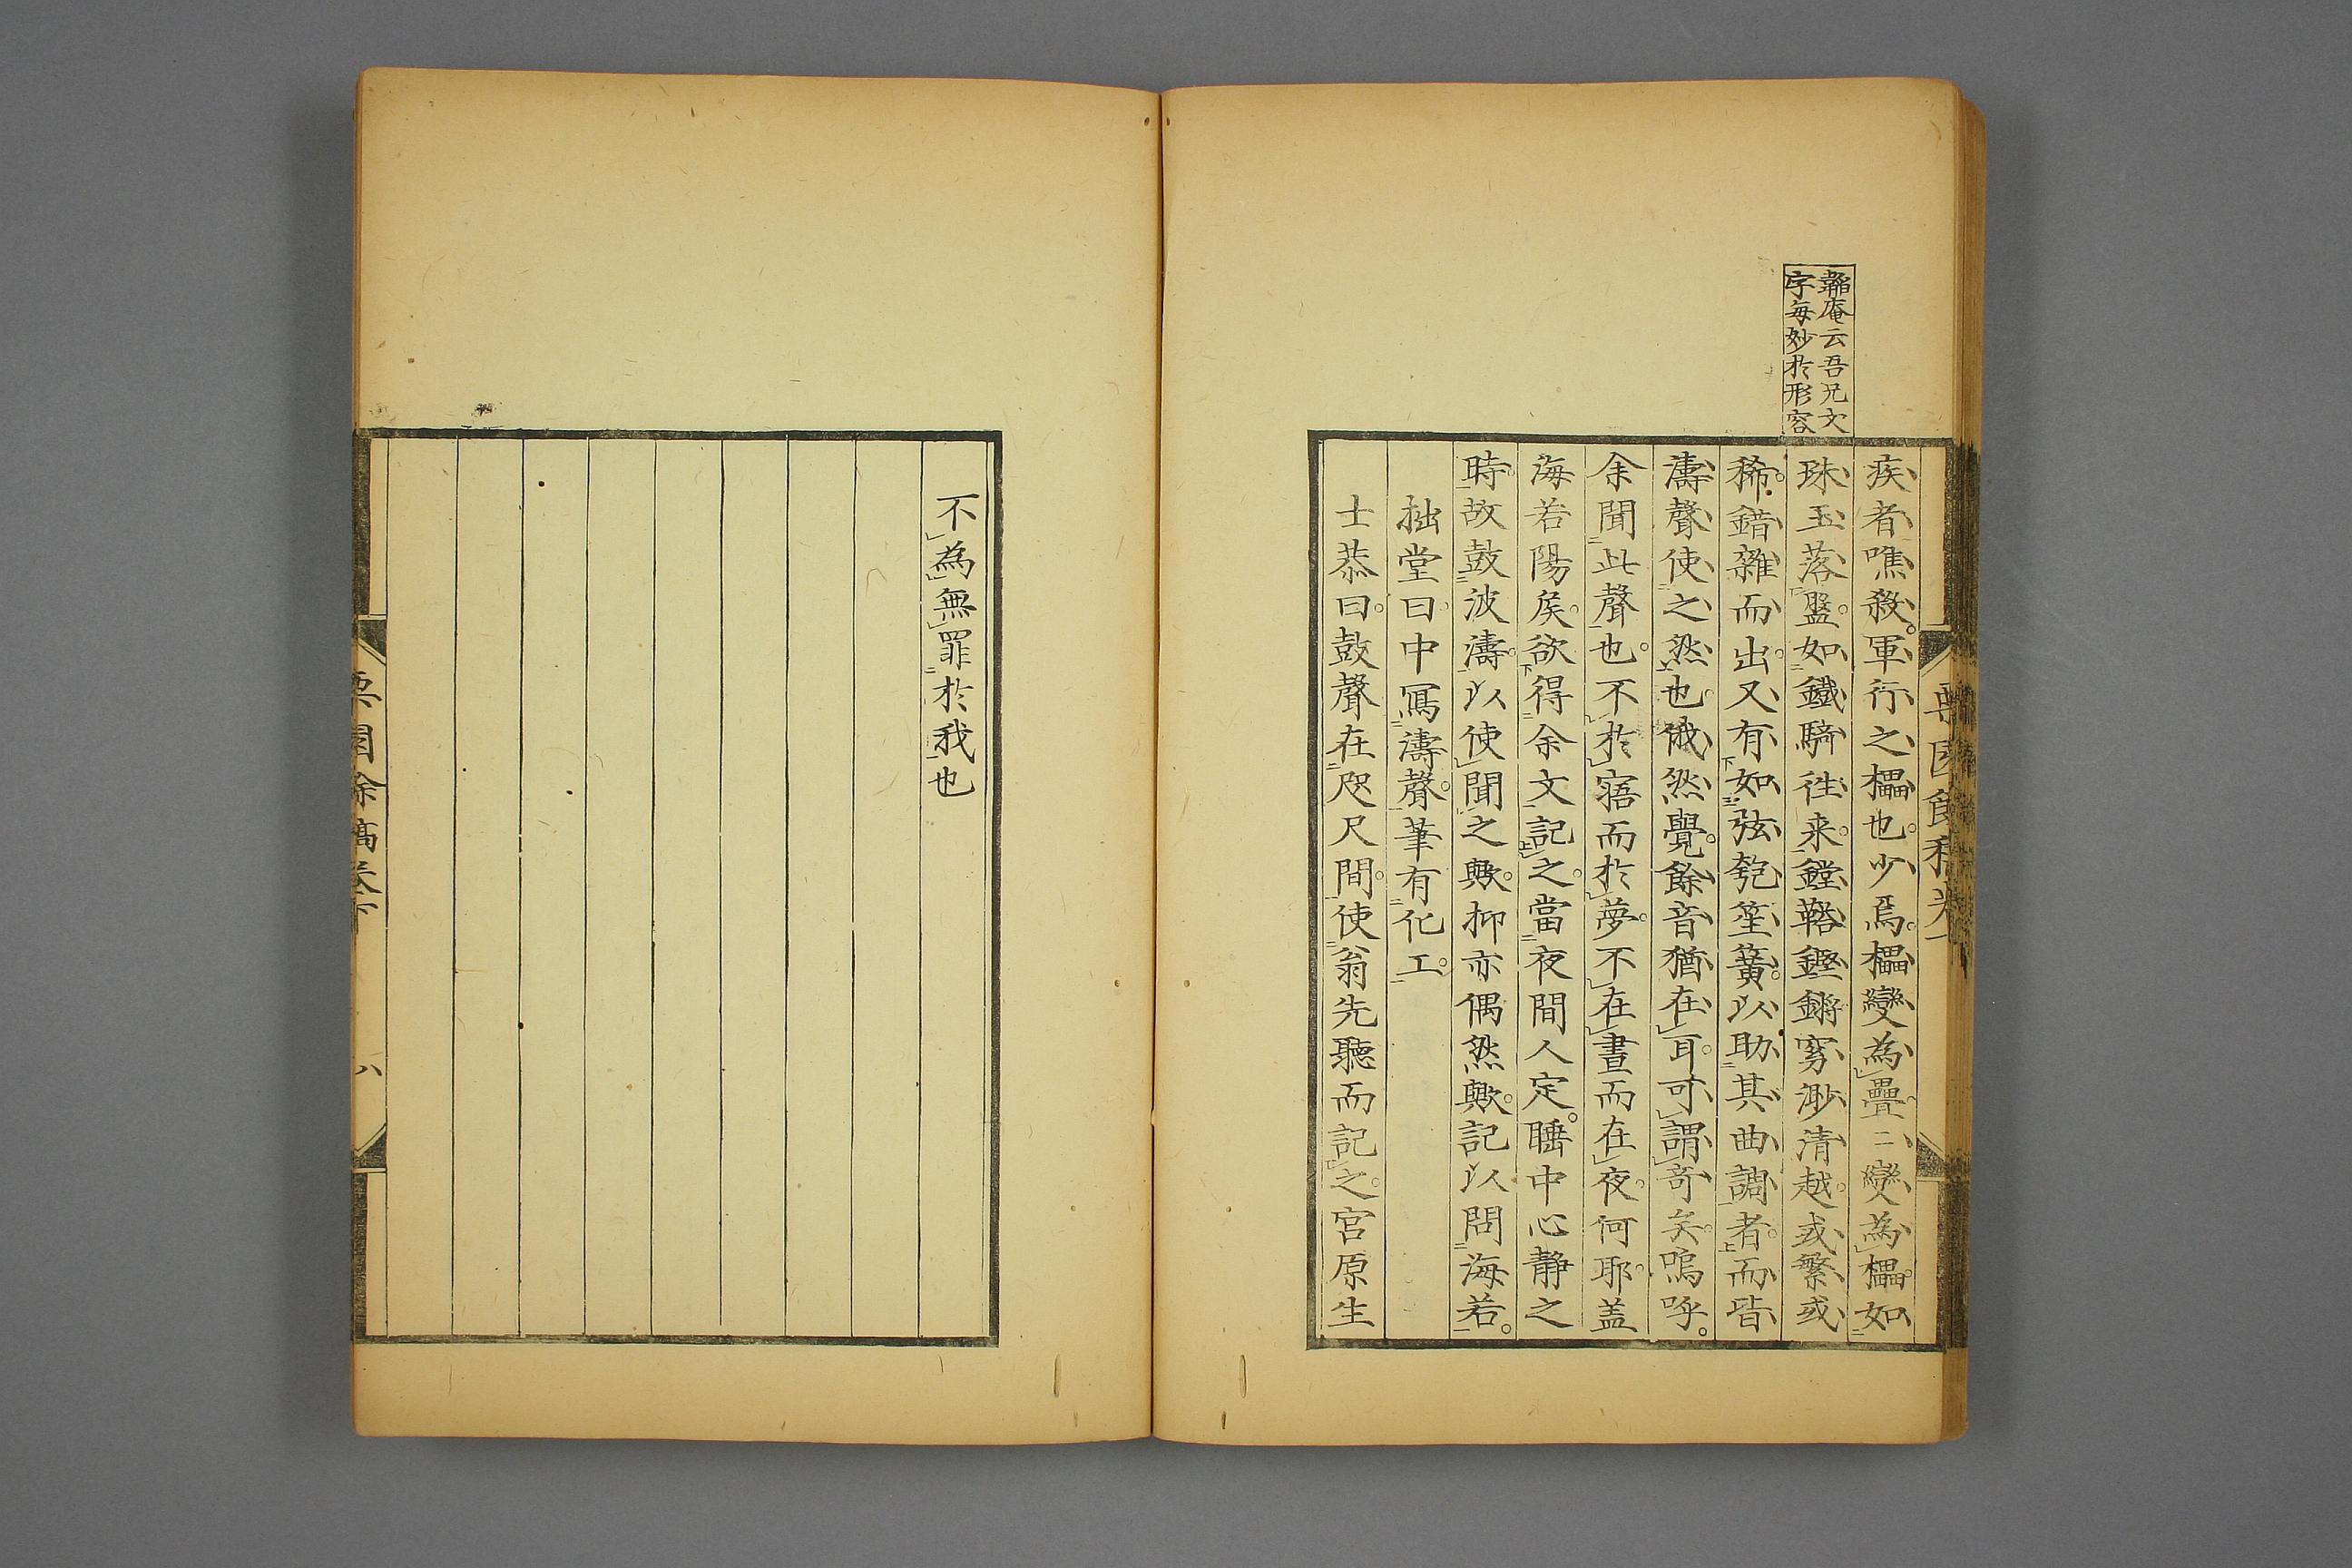 韜庵云吾兄文
字每妙於形容
疾者噍殺。軍行之櫑也。少焉。櫑變為疊二變為櫑。如
珠玉落盤。如鐵騎往来。鏜鞳鏗鏘。寥渺清越。或繁或
稀。錯雜而出。又有如弦匏笙簧。以助其曲調者。而皆
濤聲使之然也。俄然覺。餘音猶在耳。可謂奇矣。嗚呼。
余聞此聲也。不於寤而於夢。不在晝而在夜。何耶。盖
海若陽矦。欲得余文記之。當夜間人定。睡中心靜之
時。故鼓波濤。以使聞之歟。抑亦偶然歟。記以問海若。
拙堂曰。中寫濤聲。筆有化工。
士恭曰。鼓聲在咫尺間。使翁先聽而記之。宮原生
不為無罪於我也
栗園餘稿卷下
八